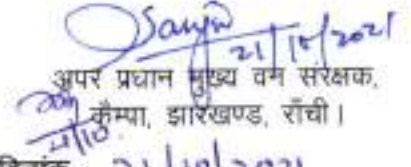 Sanjiv
21/10/2021
अपर प्रधान मुख्य वन संरक्षक,
कैम्पा, झारखण्ड, राँची।
21/10
दिनांक 21/10/2021